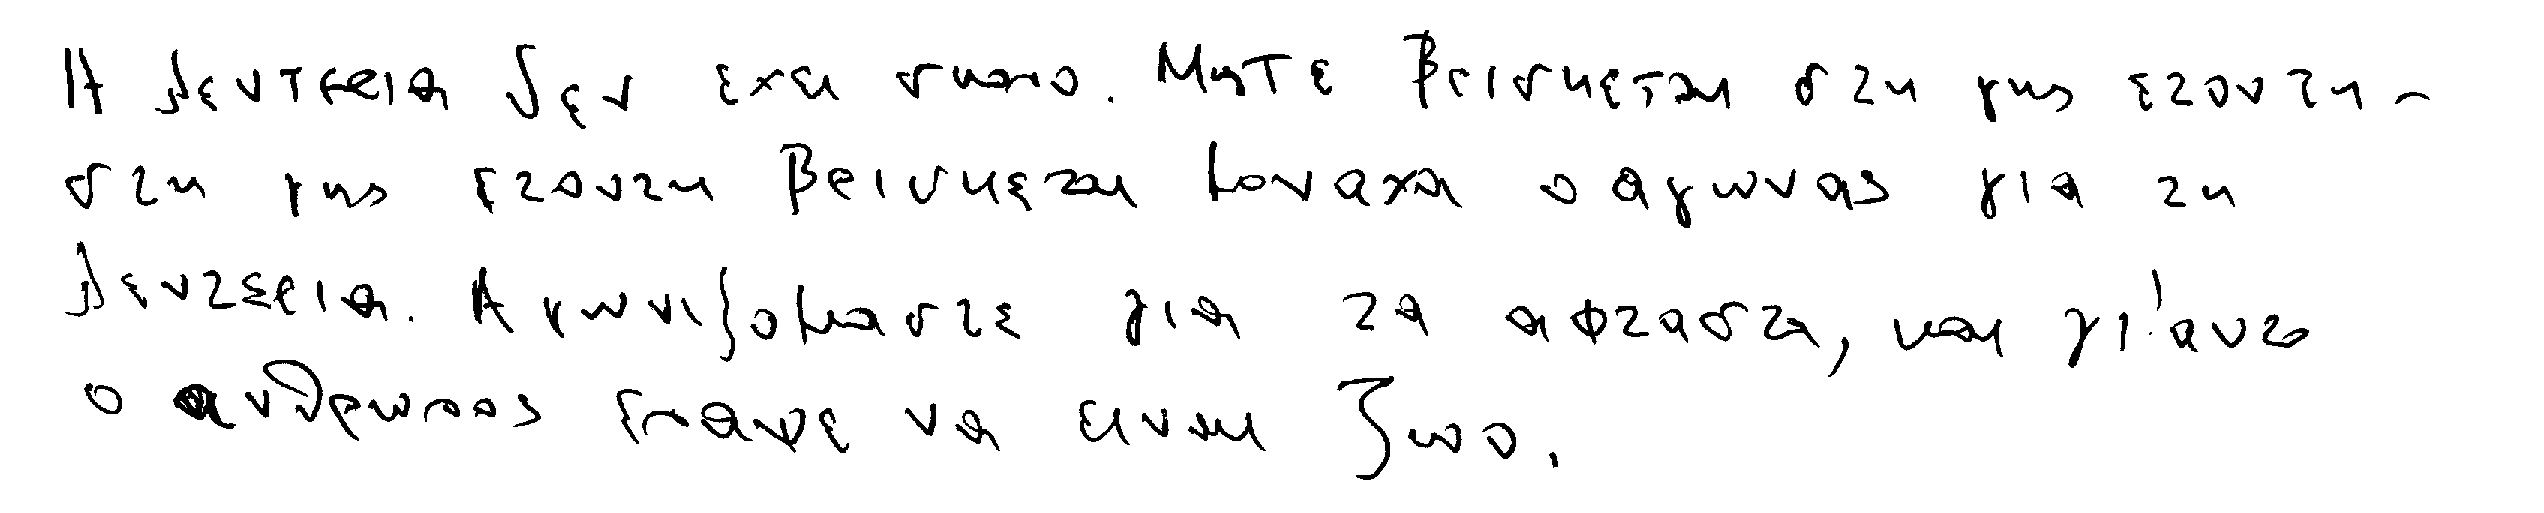 Η λευτεριά δεν εχει σκοπο. Μητε βρισκεται στη γης ετουτη -
στη γης ετουτη βρισκεται μοναχα ο αγωνας για τη
λευτερια. Αγωνιζομαστε για τα αφταστα, και γι' αυτο
ο ανθρωπος επαψε να ειναι ζωο.